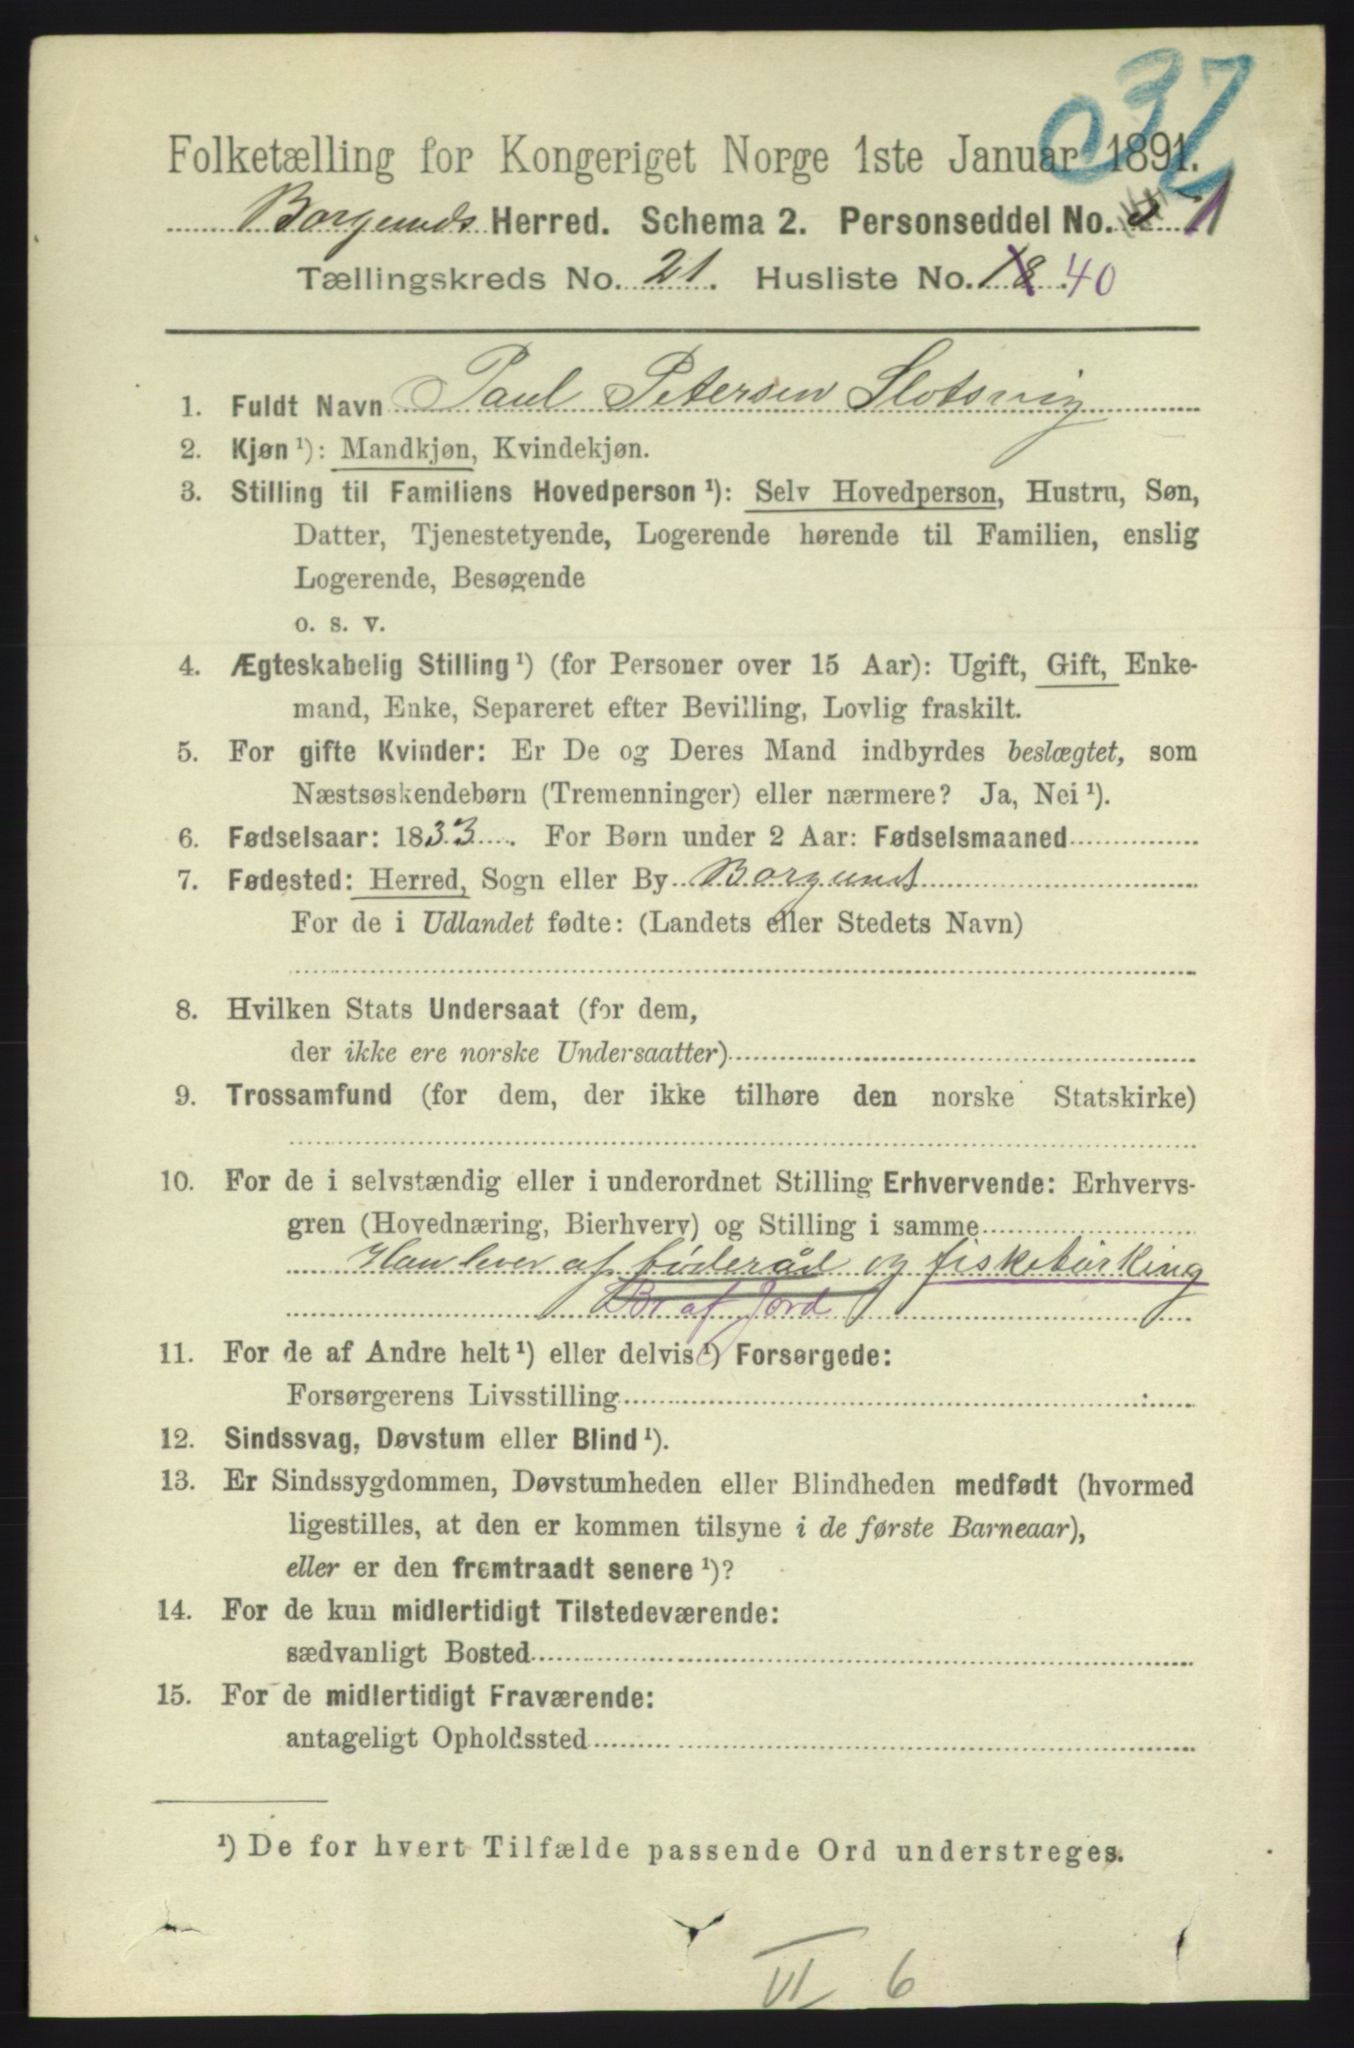 037
Folketælling for Kongeriget Norge 1ste Januar 1891.
Borgunds Herred. Schema 2. Personseddel No. 1
Tællingskreds No. 21. Husliste No. 18. 40
1. Fuldt Navn Paul Petersen Slotsvig
2. Kjøn ¹): Mandkjøn, Kvindekjøn.
3. Stilling til Familiens Hovedperson ¹): Selv Hovedperson, Hustru, Søn,
Datter, Tjenestetyende, Logerende hørende til Familien, enslig
Logerende, Besøgende
o. s. v.
4. Ægteskabelig Stilling ¹) (for Personer over 15 Aar): Ugift, Gift, Enke-
mand, Enke, Separeret efter Bevilling, Lovlig fraskilt.
5. For gifte Kvinder: Er De og Deres Mand indbyrdes beslægtet, som
Næstsøskendebørn (Tremenninger) eller nærmere? Ja, Nei ¹).
6. Fødselsaar: 1833. For Børn under 2 Aar: Fødselsmaaned
7. Fødested: Herred, Sogn eller By Borgund
For de i Udlandet fødte: (Landets eller Stedets Navn)
8. Hvilken Stats Undersaat (for dem,
der ikke ere norske Undersaatter)
9. Trossamfund (for dem, der ikke tilhøre den norske Statskirke)
10. For de i selvstændig eller i underordnet Stilling Erhvervende: Erhvervs-
gren (Hovednæring, Bierhverv) og Stilling i samme
Han lever af føderåd og fiskebürking
Br af Jord
11. For de af Andre helt ¹) eller delvis ¹) Forsørgede:
Forsørgerens Livsstilling
12. Sindssvag, Døvstum eller Blind ¹).
13. Er Sindssygdommen, Døvstumheden eller Blindheden medfødt (hvormed
ligestilles, at den er kommen tilsyne i de første Barneaar),
eller er den fremtraadt senere ¹)?
14. For de kun midlertidigt Tilstedeværende:
sædvanligt Bosted
15. For de midlertidigt Fraværende:
antageligt Opholdssted
¹) De for hvert Tilfælde passende Ord understreges.
VI 6